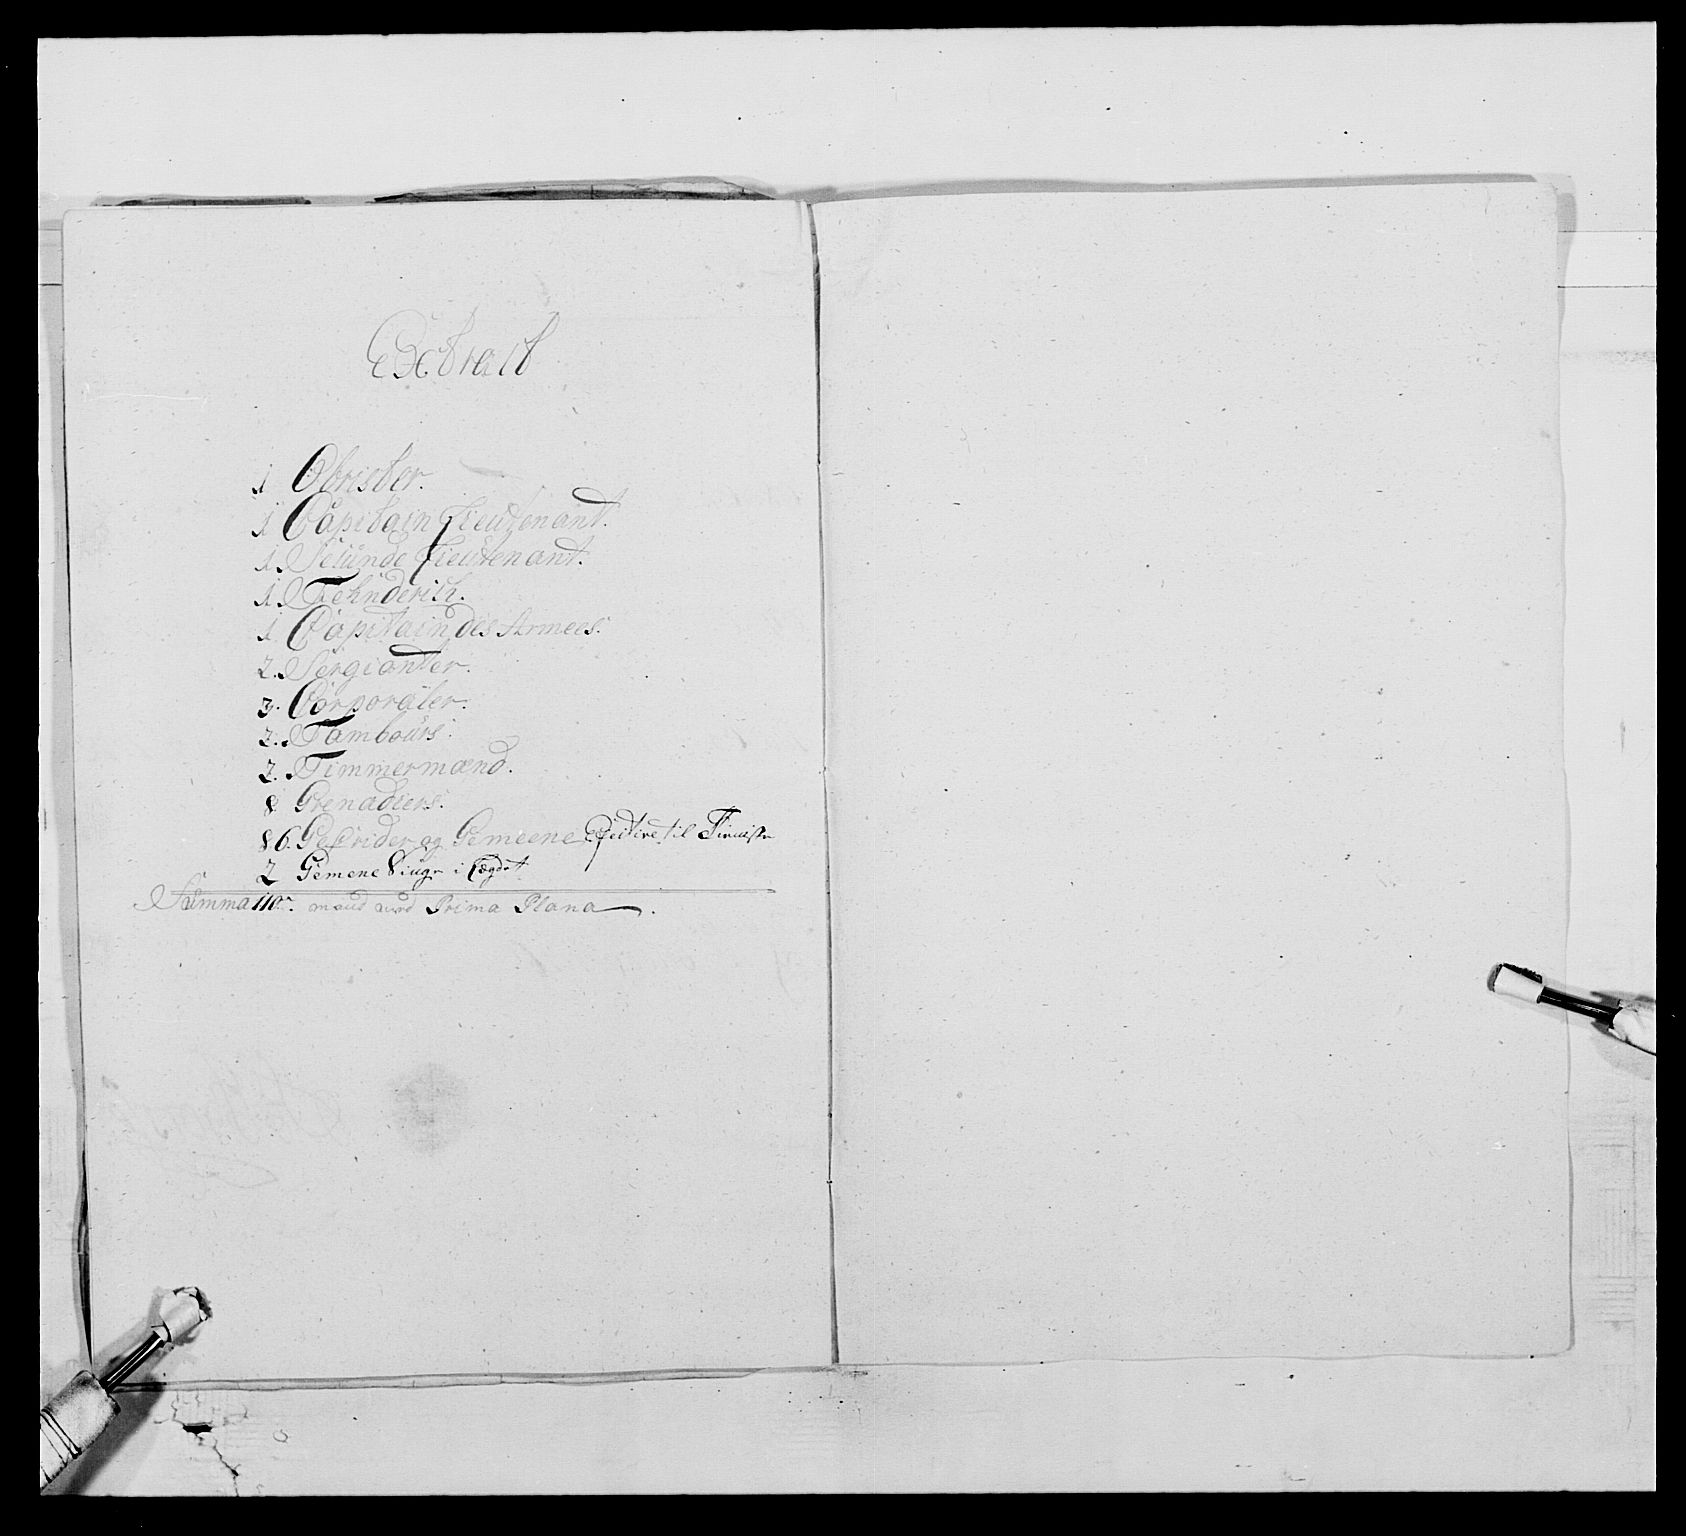 Extract
1 Obrister.
1 Capitain Lieutenant.
1. Secunde Lieutenant.
1. Fehnderich.
1 Capitain des Armees.
2. Sergianter.
3. Corporaler.
2. Tambours.
2. Timmermænd.
8 Grenadiers.
86. Gefrider og Gemeene Efective til
2 Gemene Siuge i Lægdet
Summa 110. mand med Prima Plana.